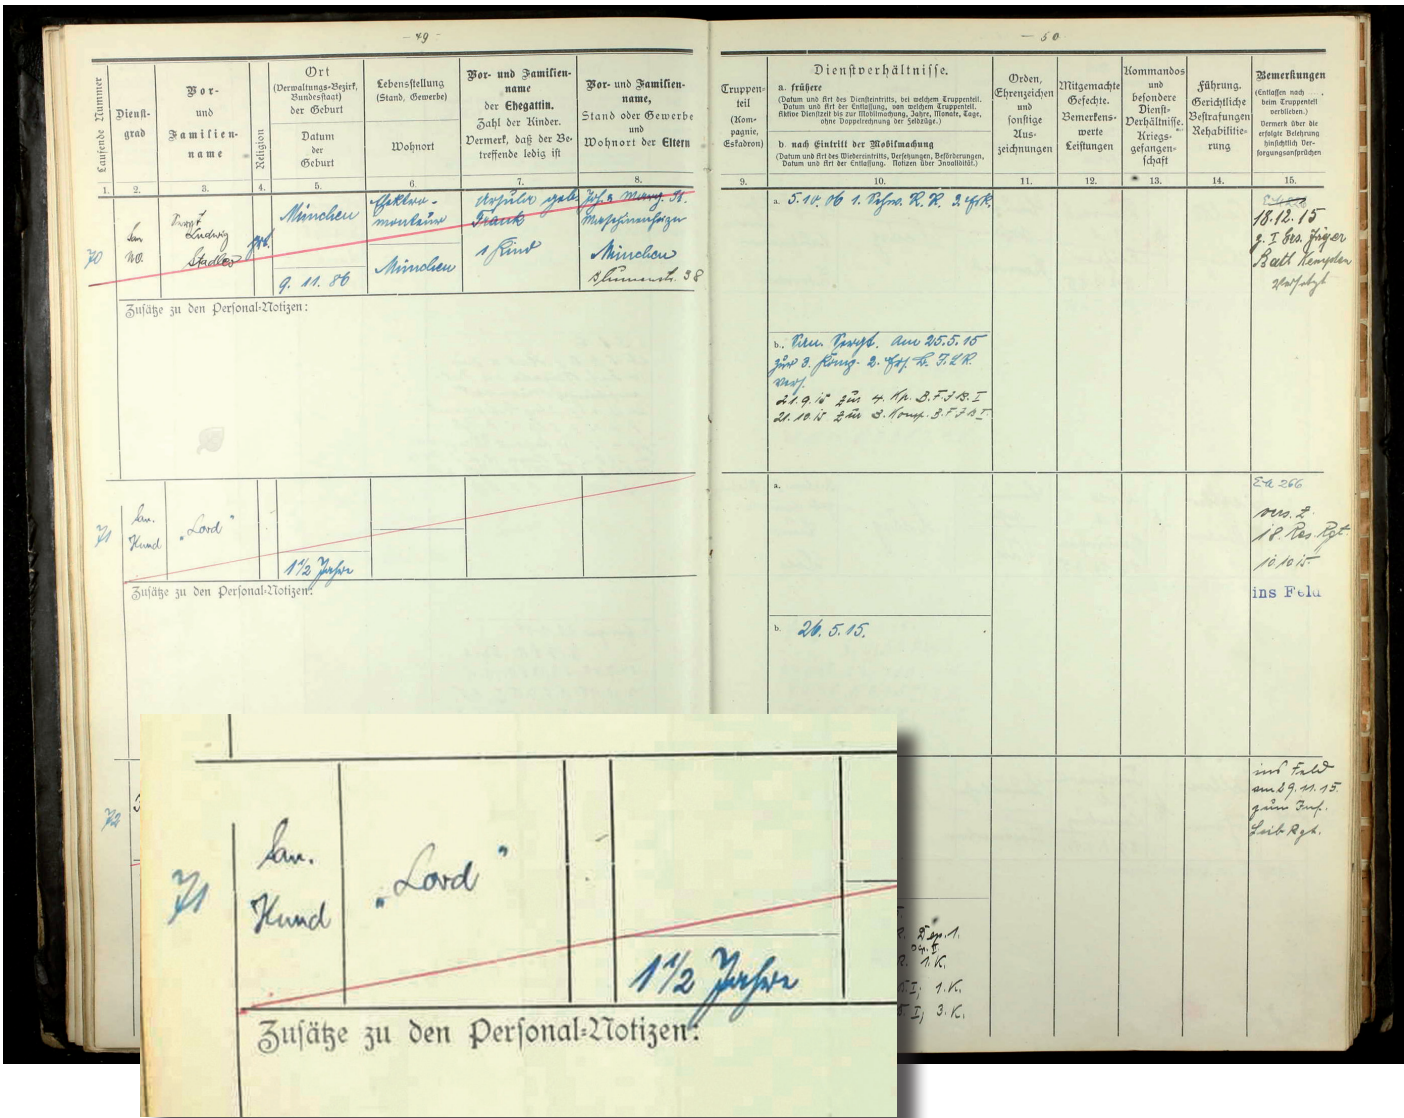 - 49 -
Laufende Nummer
Dienst-
grad
Vor-
und
Familien-
name
Religion
Ort
(Verwaltungs-Bezirk,
Bundesstaat)
der Geburt
Datum
der
Geburt
Lebensstellung
(Stand, Gewerbe)
Wohnort
Vor- und Familien-
name
der Ehegattin.
Zahl der Kinder.
Vermerk, daß der Be-
treffende ledig ist
Vor- und Familien-
name,
Stand oder Gewerbe
und
Wohnort der Eltern
1.
2.
3.
4.
5.
6.
7.
8.
70
San
Ludwig
Stadler
München
9. 11. 86
Elektro-
monteur
München
Ursula geb.
Frank
1 Kind
München
38
Zusätze zu den Personal-Notizen:
71
San.
Hund
„Lord"
1 1/2 Jahre
Zusätze zu den Personal-Notizen:
72
- 50
Truppen-
teil
(Kom-
pagnie,
Eskadron)
Dienstverhältnisse.
a. frühere
(Datum und Art des Diensteintritts, bei welchem Truppenteil.
Datum und Art der Entlassung, von welchem Truppenteil.
Aktive Dienstzeit bis zur Mobilmachung, Jahre, Monate, Tage,
ohne Doppelrechnung der Feldzüge.)
b. nach Eintritt der Mobilmachung
(Datum und Art des Wiedereintritts, Versetzungen, Beförderungen,
Datum und Art der Entlassung. Notizen über Invalidität.)
Orden,
Ehrenzeichen
und
sonstige
Aus-
zeichnungen
Mitgemachte
Gefechte.
Bemerkens-
werte
Leistungen
Kommandos
und
besondere
Dienst-
Verhältnisse.
Kriegs-
gefangen-
schaft
Führung.
Gerichtliche
Bestrafungen
Rehabilitie-
rung
Bemerkungen
(Entlassen nach
beim Truppenteil
verblieben.)
Vermerk über die
erfolgte Belehrung
hinsichtlich Ver-
sorgungsansprüchen
9.
10.
11.
12.
13.
14.
15.
a. 5.10.06 1. Schw. R. R. 2. Esk.
b. San. Sergt. Am 25.5.15
zur 3. Komp. 2. Ers. B. I.L.R.
vers.
21.9.15 zur 4. Kp. B.F.J.B.I
21.10.15 zur 3. Komp. B.F.J.B I
18.12.15
z. I Ers. Jäger
Batl Kempten
Versetzt
a.
b. 26. 5. 15.
266
vers. z.
18. Res. Rgt.
10.10.15
ins Feld
ins Feld
am 29.11.15
zum Inf.
Leib Rgt.
1. K.
1. K.
I; 3. K.
71
San.
Hund
„Lord"
1 1/2 Jahre
Zusätze zu den Personal-Notizen: